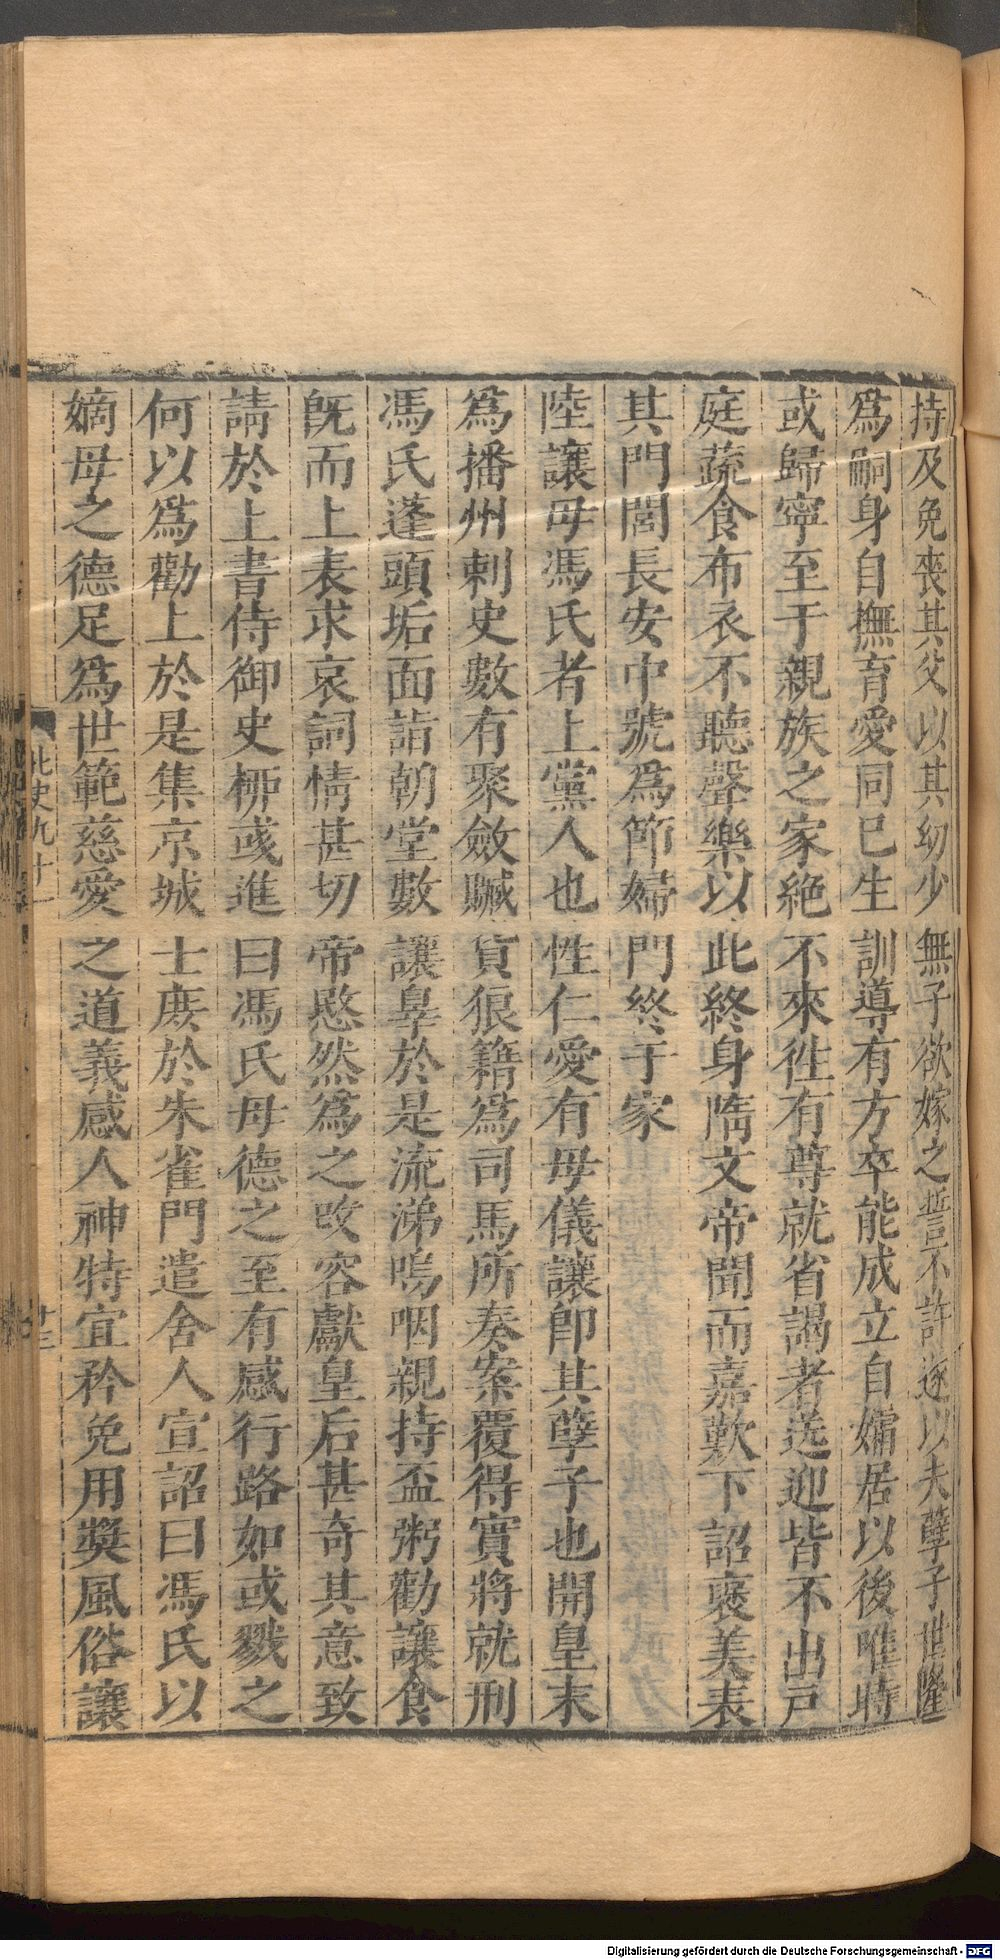 持及免喪其父以其幼少無子欲嫁之誓不許遂以夫孽子世隆
爲嗣身自撫育愛同巳生訓導有方卒能成立自孀居以後唯時
或歸寧至于親族之家絶不來徃有尊就省謁者送迎皆不出戸
庭蔬食布衣不聽聲樂以此終身隋文帝聞而嘉歎下詔褒美表
其門閭長安中號爲節婦門終于家
陸讓母馮氏者上黨人也性仁愛有母儀讓即其孽子也開皇末
爲播州刺史數有聚斂贓貨狼籍爲司馬所奏案覆得實將就刑
馮氏蓬頭垢面詣朝堂數讓辠於是流涕嗚咽親持盃粥勸讓食
旣而上表求哀詞情甚切帝愍然爲之改容獻皇后甚奇其意致
請於上書侍御史柳彧進曰馮氏母德之至有感行路如或戮之
何以爲勸上於是集京城士庶於朱雀門遣舍人宣詔曰馮氏以
嫡母之德足爲世範慈愛之道義感人神特宜矜免用奬風俗讓
北史九十一
十三
Digitalisierung gefördert durch die Deutsche Forschungsgemeinschaft - DFG